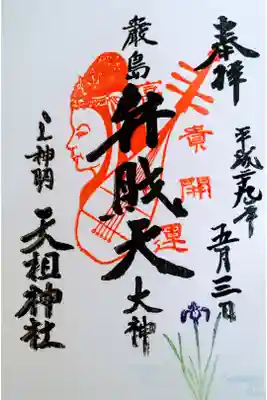 奉拝
平成二九年
五月三日
富貴開運
厳島
弁財天
大神
上神明
天祖神社